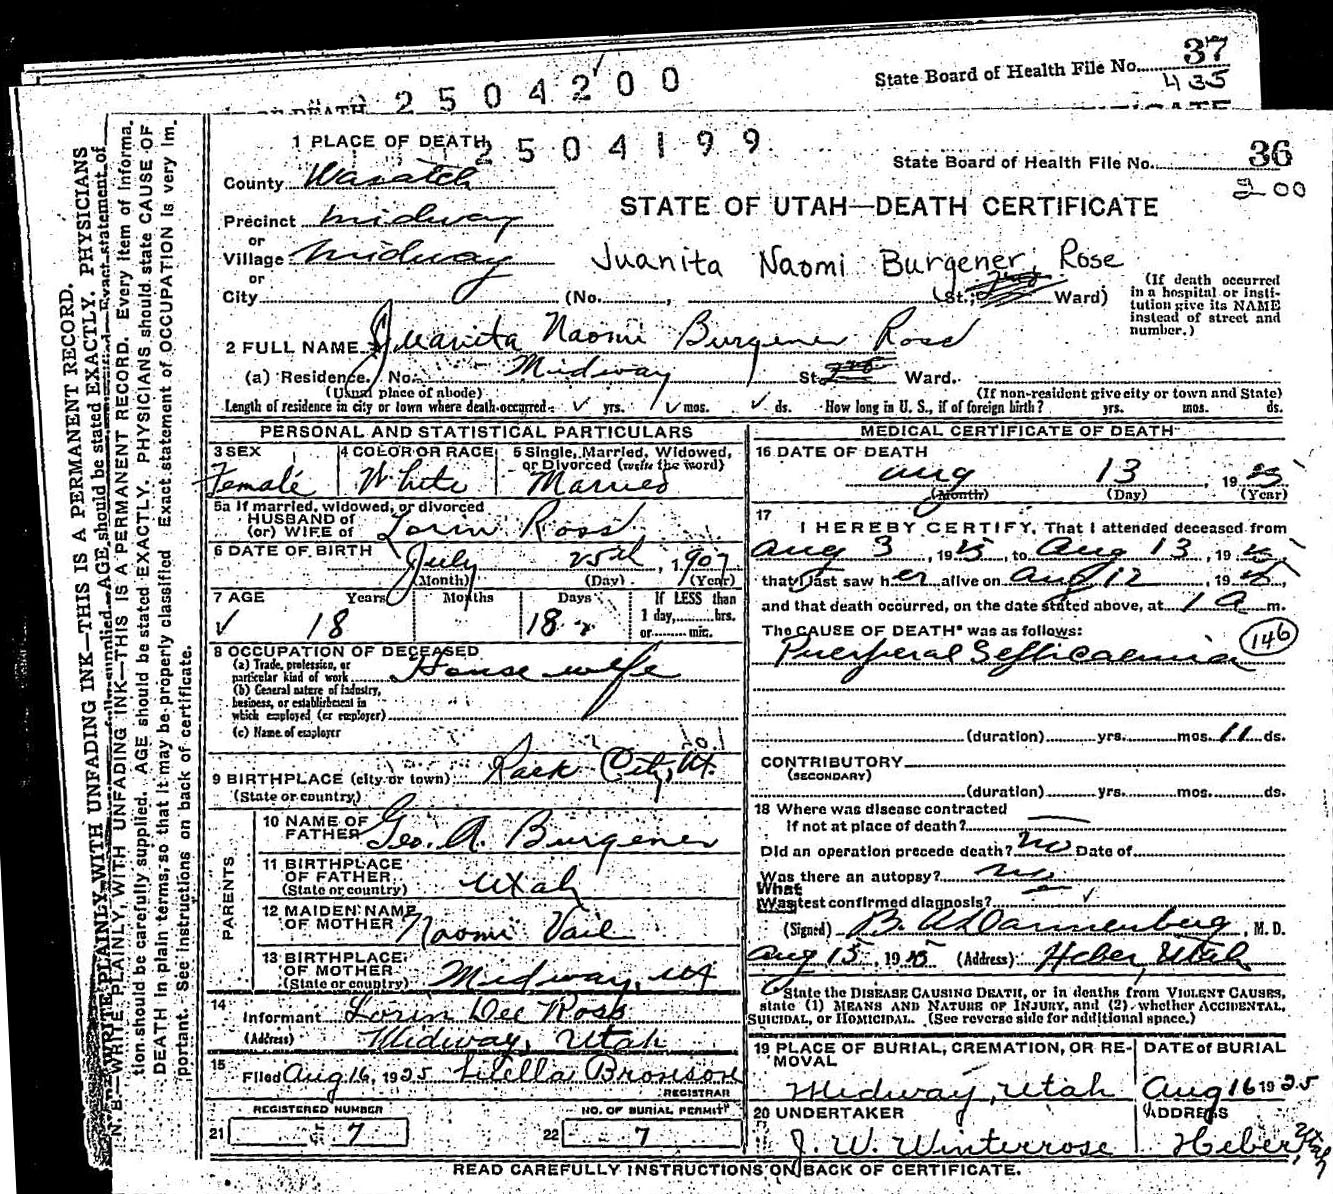 37
State Board of Health File No.
435
2504200
2504199
1 PLACE OF DEATH
State Board of Health File No. 36
200
County Wasatch
STATE OF UTAH—DEATH CERTIFICATE
Precinct Midway
or
Village Midway
Juanita Naomi Burgener Rose
or
City (No. , (St.; Ward)
(If death occurred in a hospital or insti-
tution give its NAME
instead of street and
number.)
2 FULL NAME Juanita Naomi Burgener Ross
(a) Residence. No. Midway St. Ward.
(Usual place of abode) (If non-resident give city or town and State)
Length of residence in city or town where death occurred yrs. mos. ds. How long in U. S., if of foreign birth? yrs. mos. ds.
PERSONAL AND STATISTICAL PARTICULARS
3 SEX 4 COLOR OR RACE 5 Single, Married, Widowed,
or Divorced (write the word)
Female White Married
5a If married, widowed, or divorced
HUSBAND of
(or) WIFE of Lorin Ross
6 DATE OF BIRTH July 25th, 1907
(Month) (Day) (Year)
7 AGE Years Months Days If LESS than
1 day, hrs.
or min.
18 18
8 OCCUPATION OF DECEASED
(a) Trade, profession, or
particular kind of work House wife
(b) General nature of industry,
business, or establishment in
which employed (or employer)
(c) Name of employer
9 BIRTHPLACE (city or town) Park City, Ut.
(State or country)
PARENTS
10 NAME OF
FATHER Geo. A. Burgener
11 BIRTHPLACE
OF FATHER
(State or country) Utah
12 MAIDEN NAME
OF MOTHER Naomi Vail
13 BIRTHPLACE
OF MOTHER
(State or country) Midway, Ut
14
Informant Lorin Dee Ross
(Address) Midway, Utah
15
Filed Aug 16, 1925 Bronson
REGISTRAR
REGISTERED NUMBER NO. OF BURIAL PERMIT
21 7 22 7
MEDICAL CERTIFICATE OF DEATH
16 DATE OF DEATH
Aug 13, 1925
(Month) (Day) (Year)
17
I HEREBY CERTIFY, That I attended deceased from
Aug 3, 1925, to Aug 13, 1925,
that I last saw her alive on Aug 12, 1925,
and that death occurred, on the date stated above, at 1 a m.
The CAUSE OF DEATH* was as follows:
146
Puerperal Septicaemia
(duration) yrs. mos. 11 ds.
CONTRIBUTORY
(SECONDARY)
(duration) yrs. mos. ds.
18 Where was disease contracted
if not at place of death?
Did an operation precede death? no Date of
Was there an autopsy? no
What
Was test confirmed diagnosis?
(Signed) B. A. Dannenberg, M. D.
Aug 15, 1925 (Address) Heber, Utah
State the DISEASE CAUSING DEATH, or in deaths from VIOLENT CAUSES,
state (1) MEANS AND NATURE OF INJURY, and (2), whether ACCIDENTAL,
SUICIDAL, or HOMICIDAL. (See reverse side for additional space.)
19 PLACE OF BURIAL, CREMATION, OR RE-
MOVAL
DATE of BURIAL
Midway, Utah Aug 16 1925
20 UNDERTAKER ADDRESS
J. W. Winterrose Heber, Utah
READ CAREFULLY INSTRUCTIONS ON BACK OF CERTIFICATE.
N. B.—WRITE PLAINLY, WITH UNFADING INK—THIS IS A PERMANENT RECORD. Every item of informa-
tion should be carefully supplied. AGE should be stated EXACTLY. PHYSICIANS should state CAUSE OF
DEATH in plain terms, so that it may be properly classified. Exact statement of OCCUPATION is very im-
portant. See instructions on back of certificate.